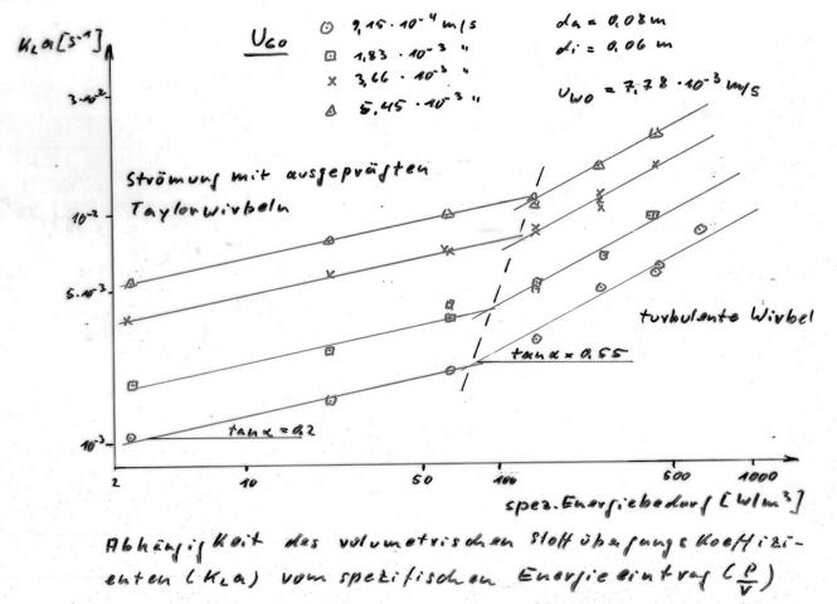 K_L a [s⁻¹]
U_GO
⊙ 9,15 · 10⁻⁴ m/s
⊡ 1,83 · 10⁻³ "
× 3,66 · 10⁻³ "
△ 5,45 · 10⁻³ "
da = 0,08 m
di = 0,06 m
U_WO = 7,78 · 10⁻³ m/s
3·10⁻²
Strömung mit ausgeprägten
Taylorwirbeln
10⁻²
5·10⁻³
turbulente Wirbel
tan α = 0,55
tan α = 0,2
10⁻³
2 10 50 100 500 1000
spez. Energiebedarf [W/m³]
Abhängigkeit des volumetrischen Stoffübergangskoeffizi-
enten (K_L a) vom spezifischen Energieeintrag (P/V)